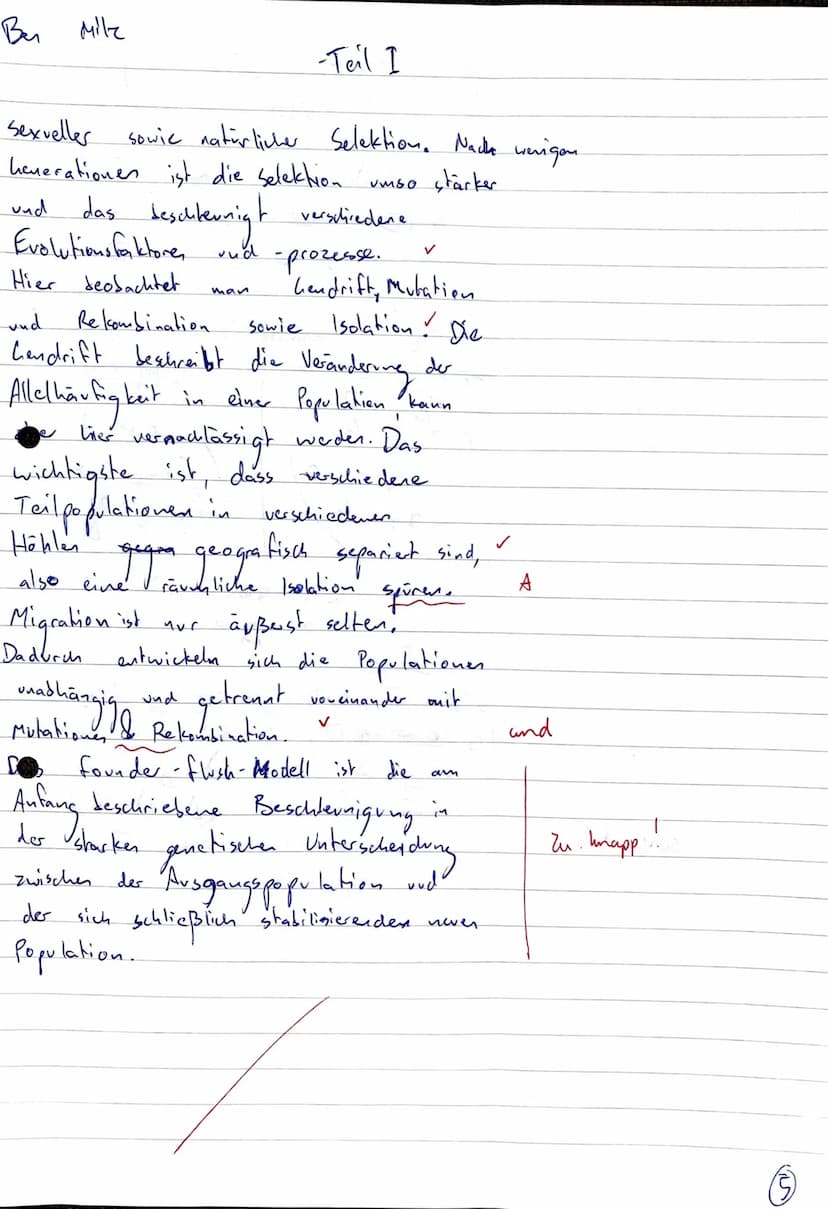 Ben Milz
-Teil I
sexueller sowie natürlicher Selektion. Nach wenigen
Generationen ist die Selektion umso stärker
und das beschleunigt verschiedene
Evolutionsfaktoren und -prozesse. ✓
Hier beobachtet man Gendrift, Mutation
und Rekombination sowie Isolation. ✓ Die
Gendrift beschreibt die Veränderung der
Allelhäufigkeit in einer Population, kann
hier vernachlässigt werden. Das
wichtigste ist, dass verschiedene
Teilpopulationen in verschiedenen
Höhlen geografisch separiert sind, ✓
also eine räumliche Isolation spüren. A
Migration ist nur äußerst selten.
Dadurch entwickeln sich die Populationen
unabhängig und getrennt voneinander mit
Mutationen & Rekombination. ✓ und
founder-flush-Modell ist die am
Anfang beschriebene Beschleunigung in
der starken genetischen Unterscheidung zu knapp!
zwischen der Ausgangspopulation und
der sich schließlich stabilisierenden neuen
Population.
5